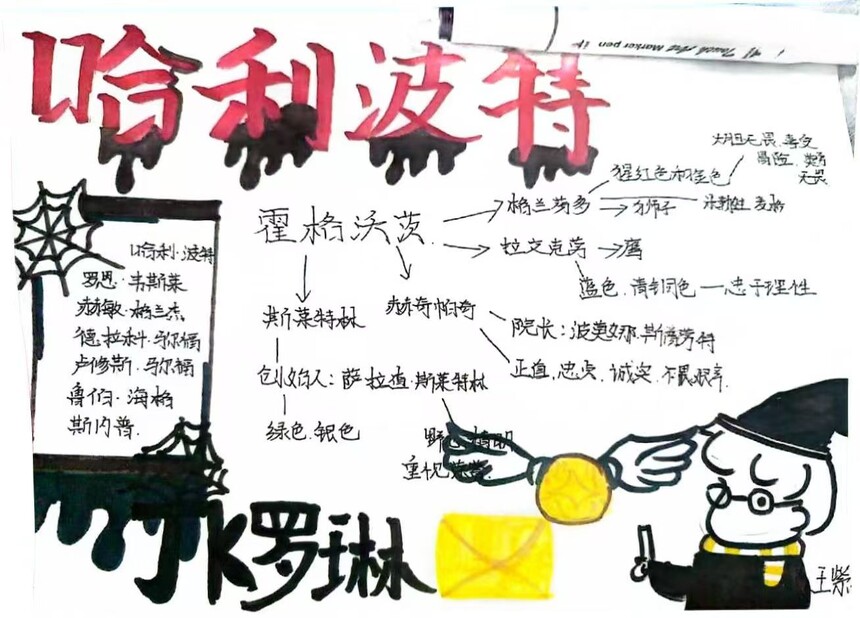 哈利波特
Touch Art Marker pen
大胆无畏、喜欢
冒险
无畏
猩红色和金色
霍格沃茨
格兰芬多
狮子
米勒娃·麦格
拉文克劳
鹰
蓝色、青铜色
忠于理性
哈利·波特
罗恩·韦斯莱
赫敏·格兰杰
德拉科·马尔福
卢修斯·马尔福
鲁伯·海格
斯内普
斯莱特林
赫奇帕奇
院长：波莫娜·斯普劳特
正直、忠贞、诚实、不畏艰辛
创始人：萨拉查·斯莱特林
绿色、银色
野心 精明
重视荣誉
JK罗琳
王紫